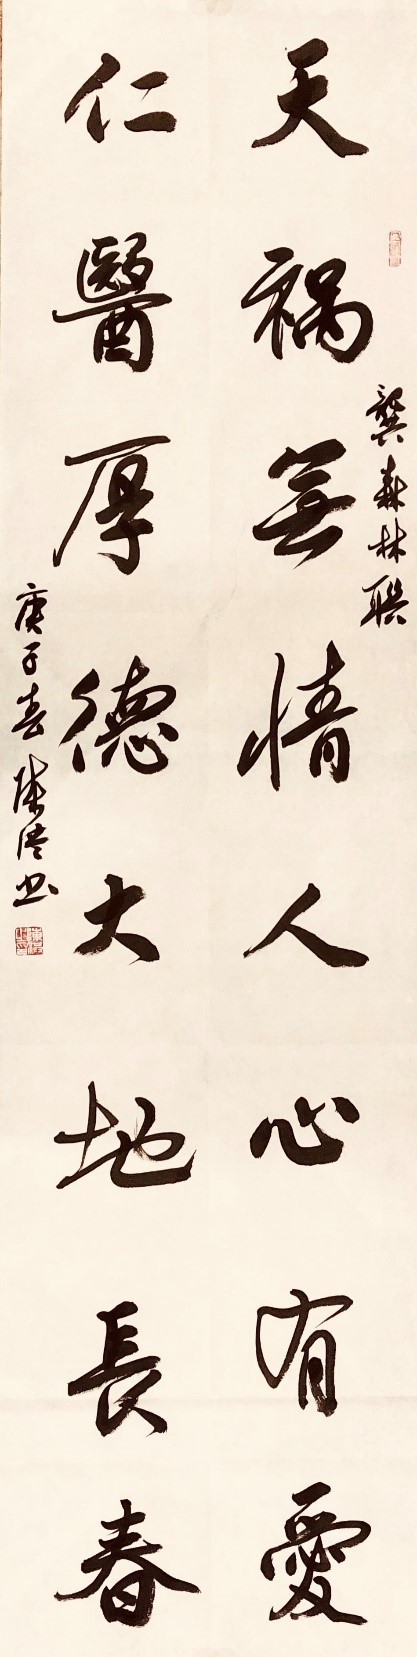 龔森林联
天祸無情人心有愛
仁醫厚德大地長春
庚子春陳浩书